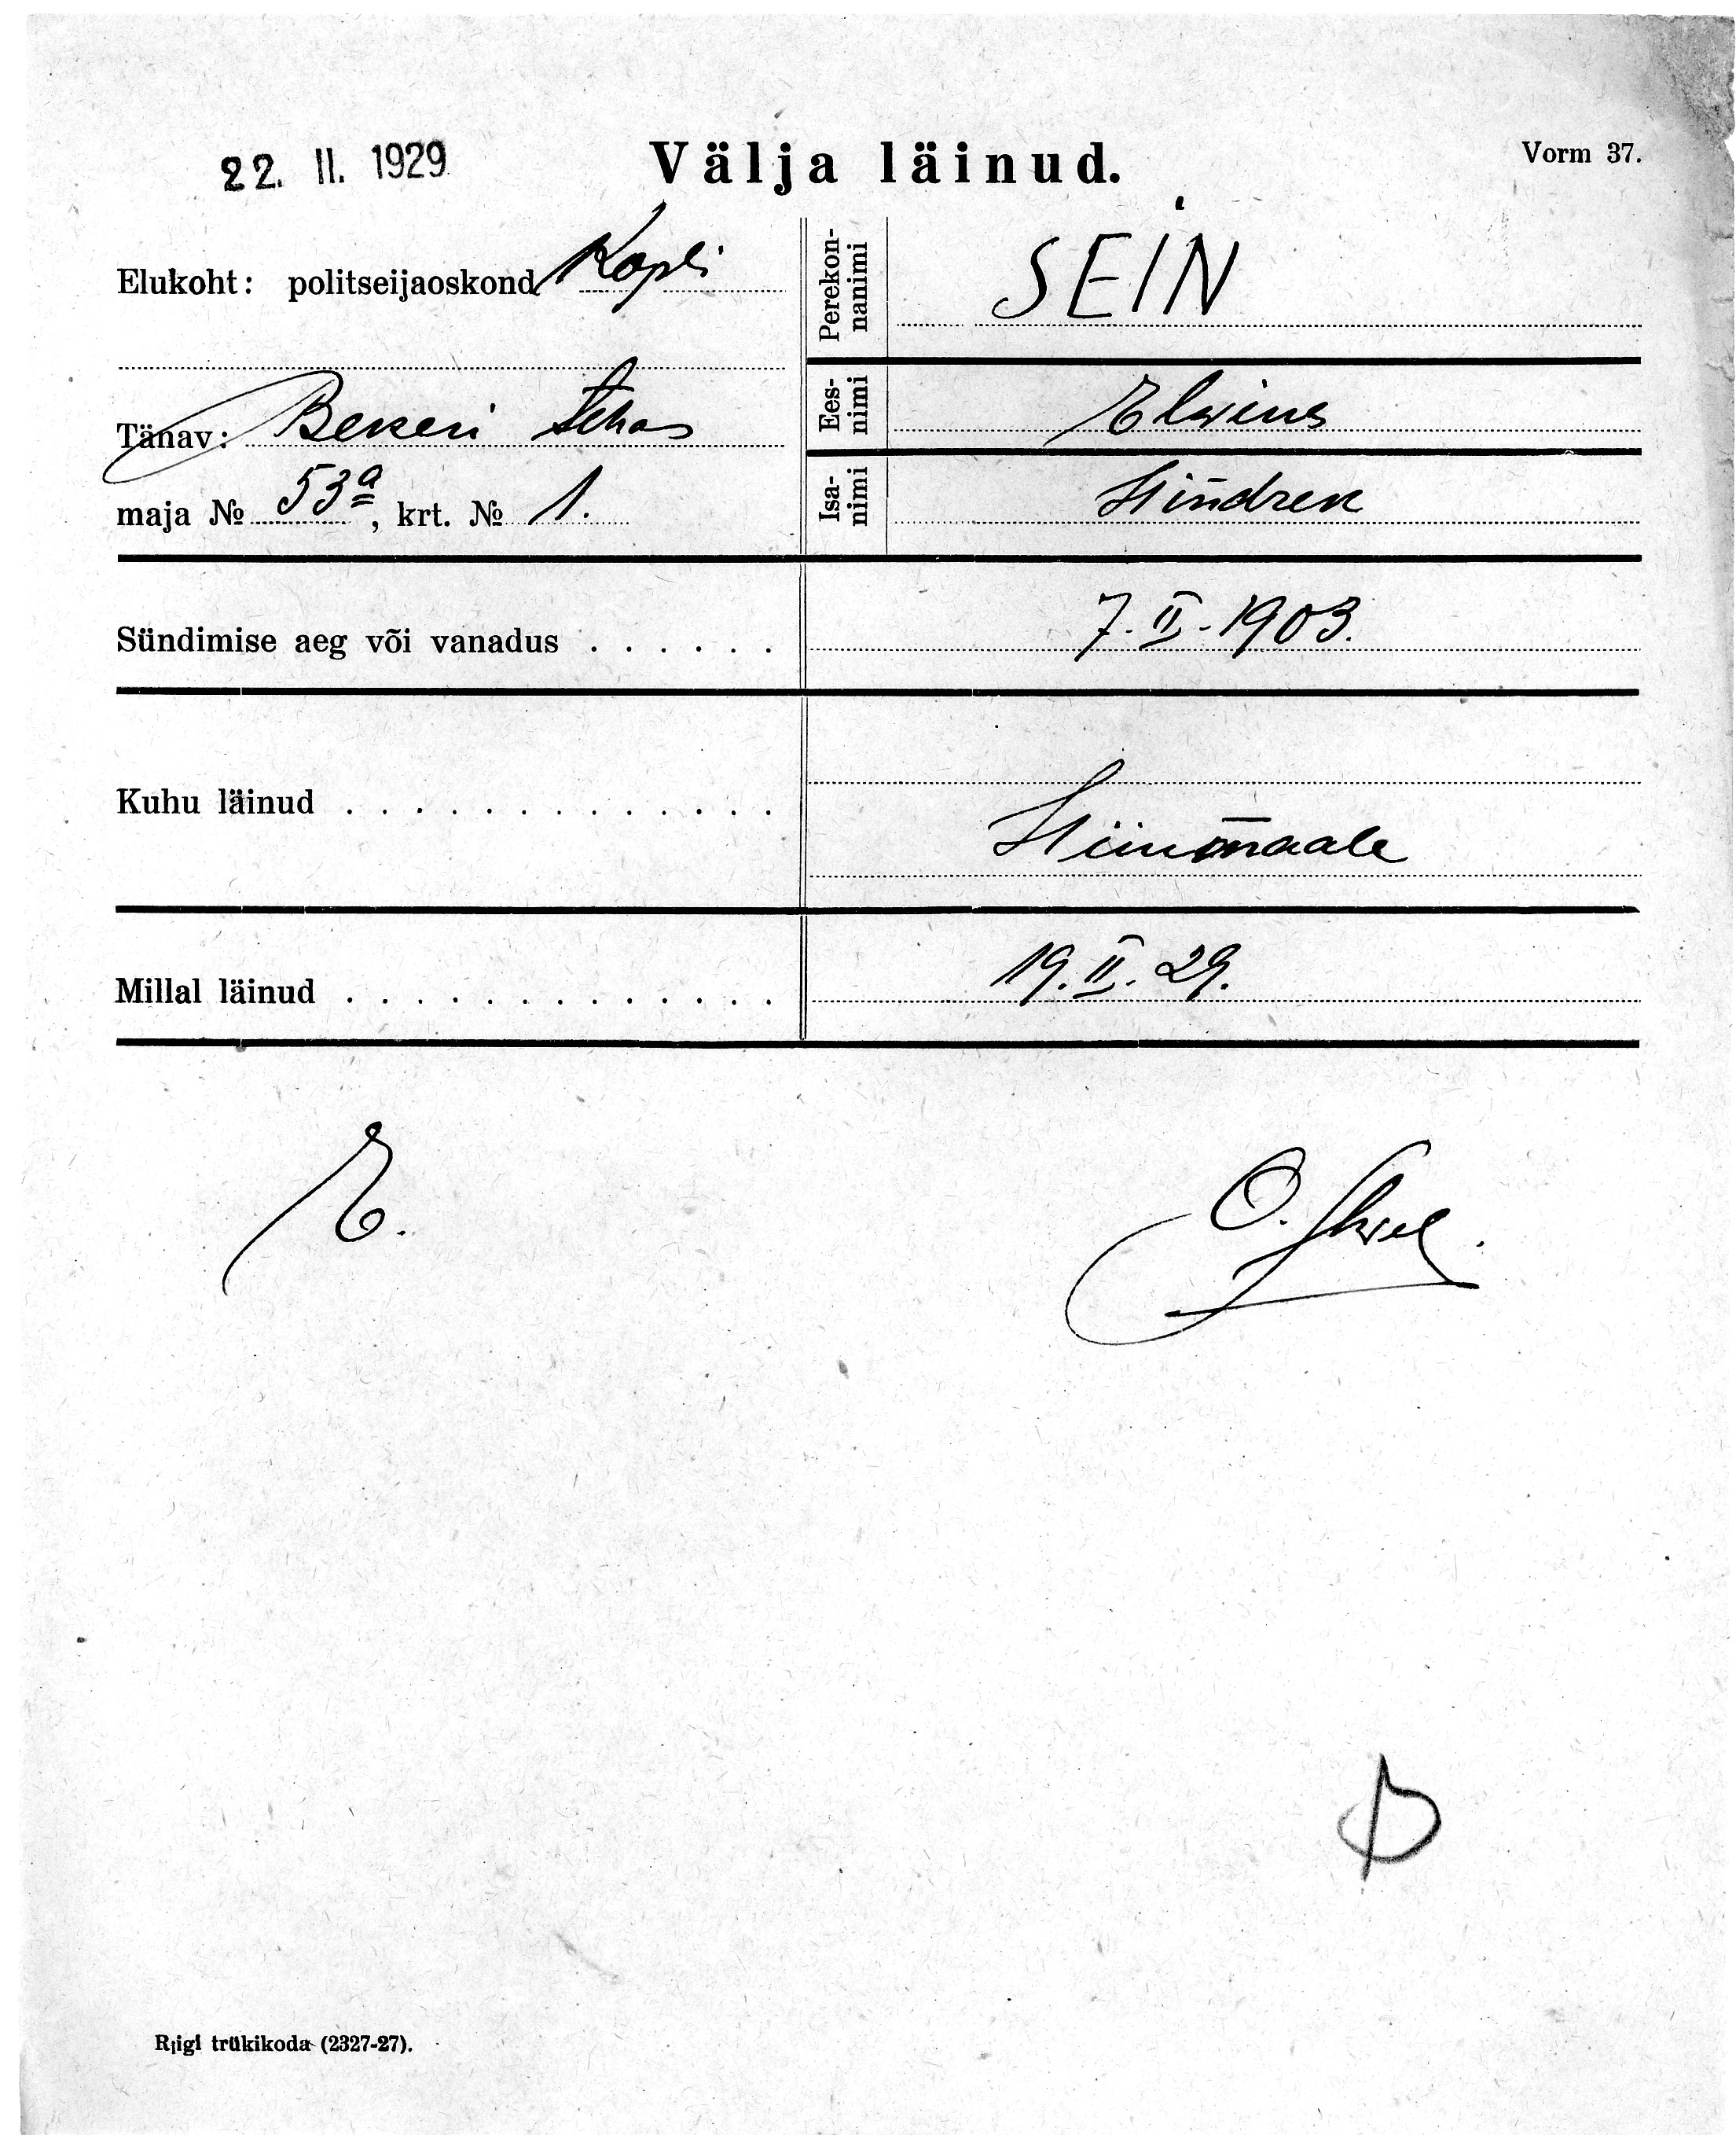 22. II. 1929
Välja läinud.
Vorm 37.
Elukoht: politseijaoskond Kopli
Tänav: Bekeri tehas
maja № 53a, krt. № 1.
Perekon-
nanimi
SEIN
Ees-
nimi
Elvine
Isa-
nimi
Hindrek
Sündimise aeg või vanadus . . . . . .
7. II. 1903.
Kuhu läinud . . . . . . . . . . . . .
Hiiumaale
Millal läinud . . . . . . . . . . . . .
19. II. 29.
E.
O.
Riigi trükikoda (2327-27).